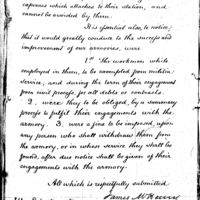 expenses which attaches to their station, and
cannot be avoided by them.
It is essential also, to notice,
that it would greatly conduce to the success and
improvement of our armories, were
1st the workmen while
employed in them, to be exempted from militia
service, and during the term of their engagement
from civil process for all debts or contracts.
2. were they to be obliged, by a summary
process to fulfil their engagements with the
armory. 3. were a fine to be imposed, upon
any person who shall withdraw them from
the armory, or in whose service they shall be
found, after due notice shall be given of their
engagements with the armory.
All which is respectfully submitted
James McHenry